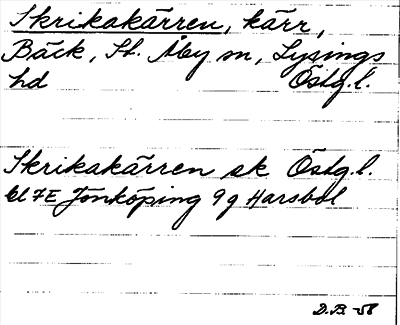 Skrikakärren, kärr,
Bäck, St. Åby sn, Lysings
hd Östg.l.
Skrikakärren ek Östg.l.
bl 7E Jönköping 9 g Harsbol
D.B. -58